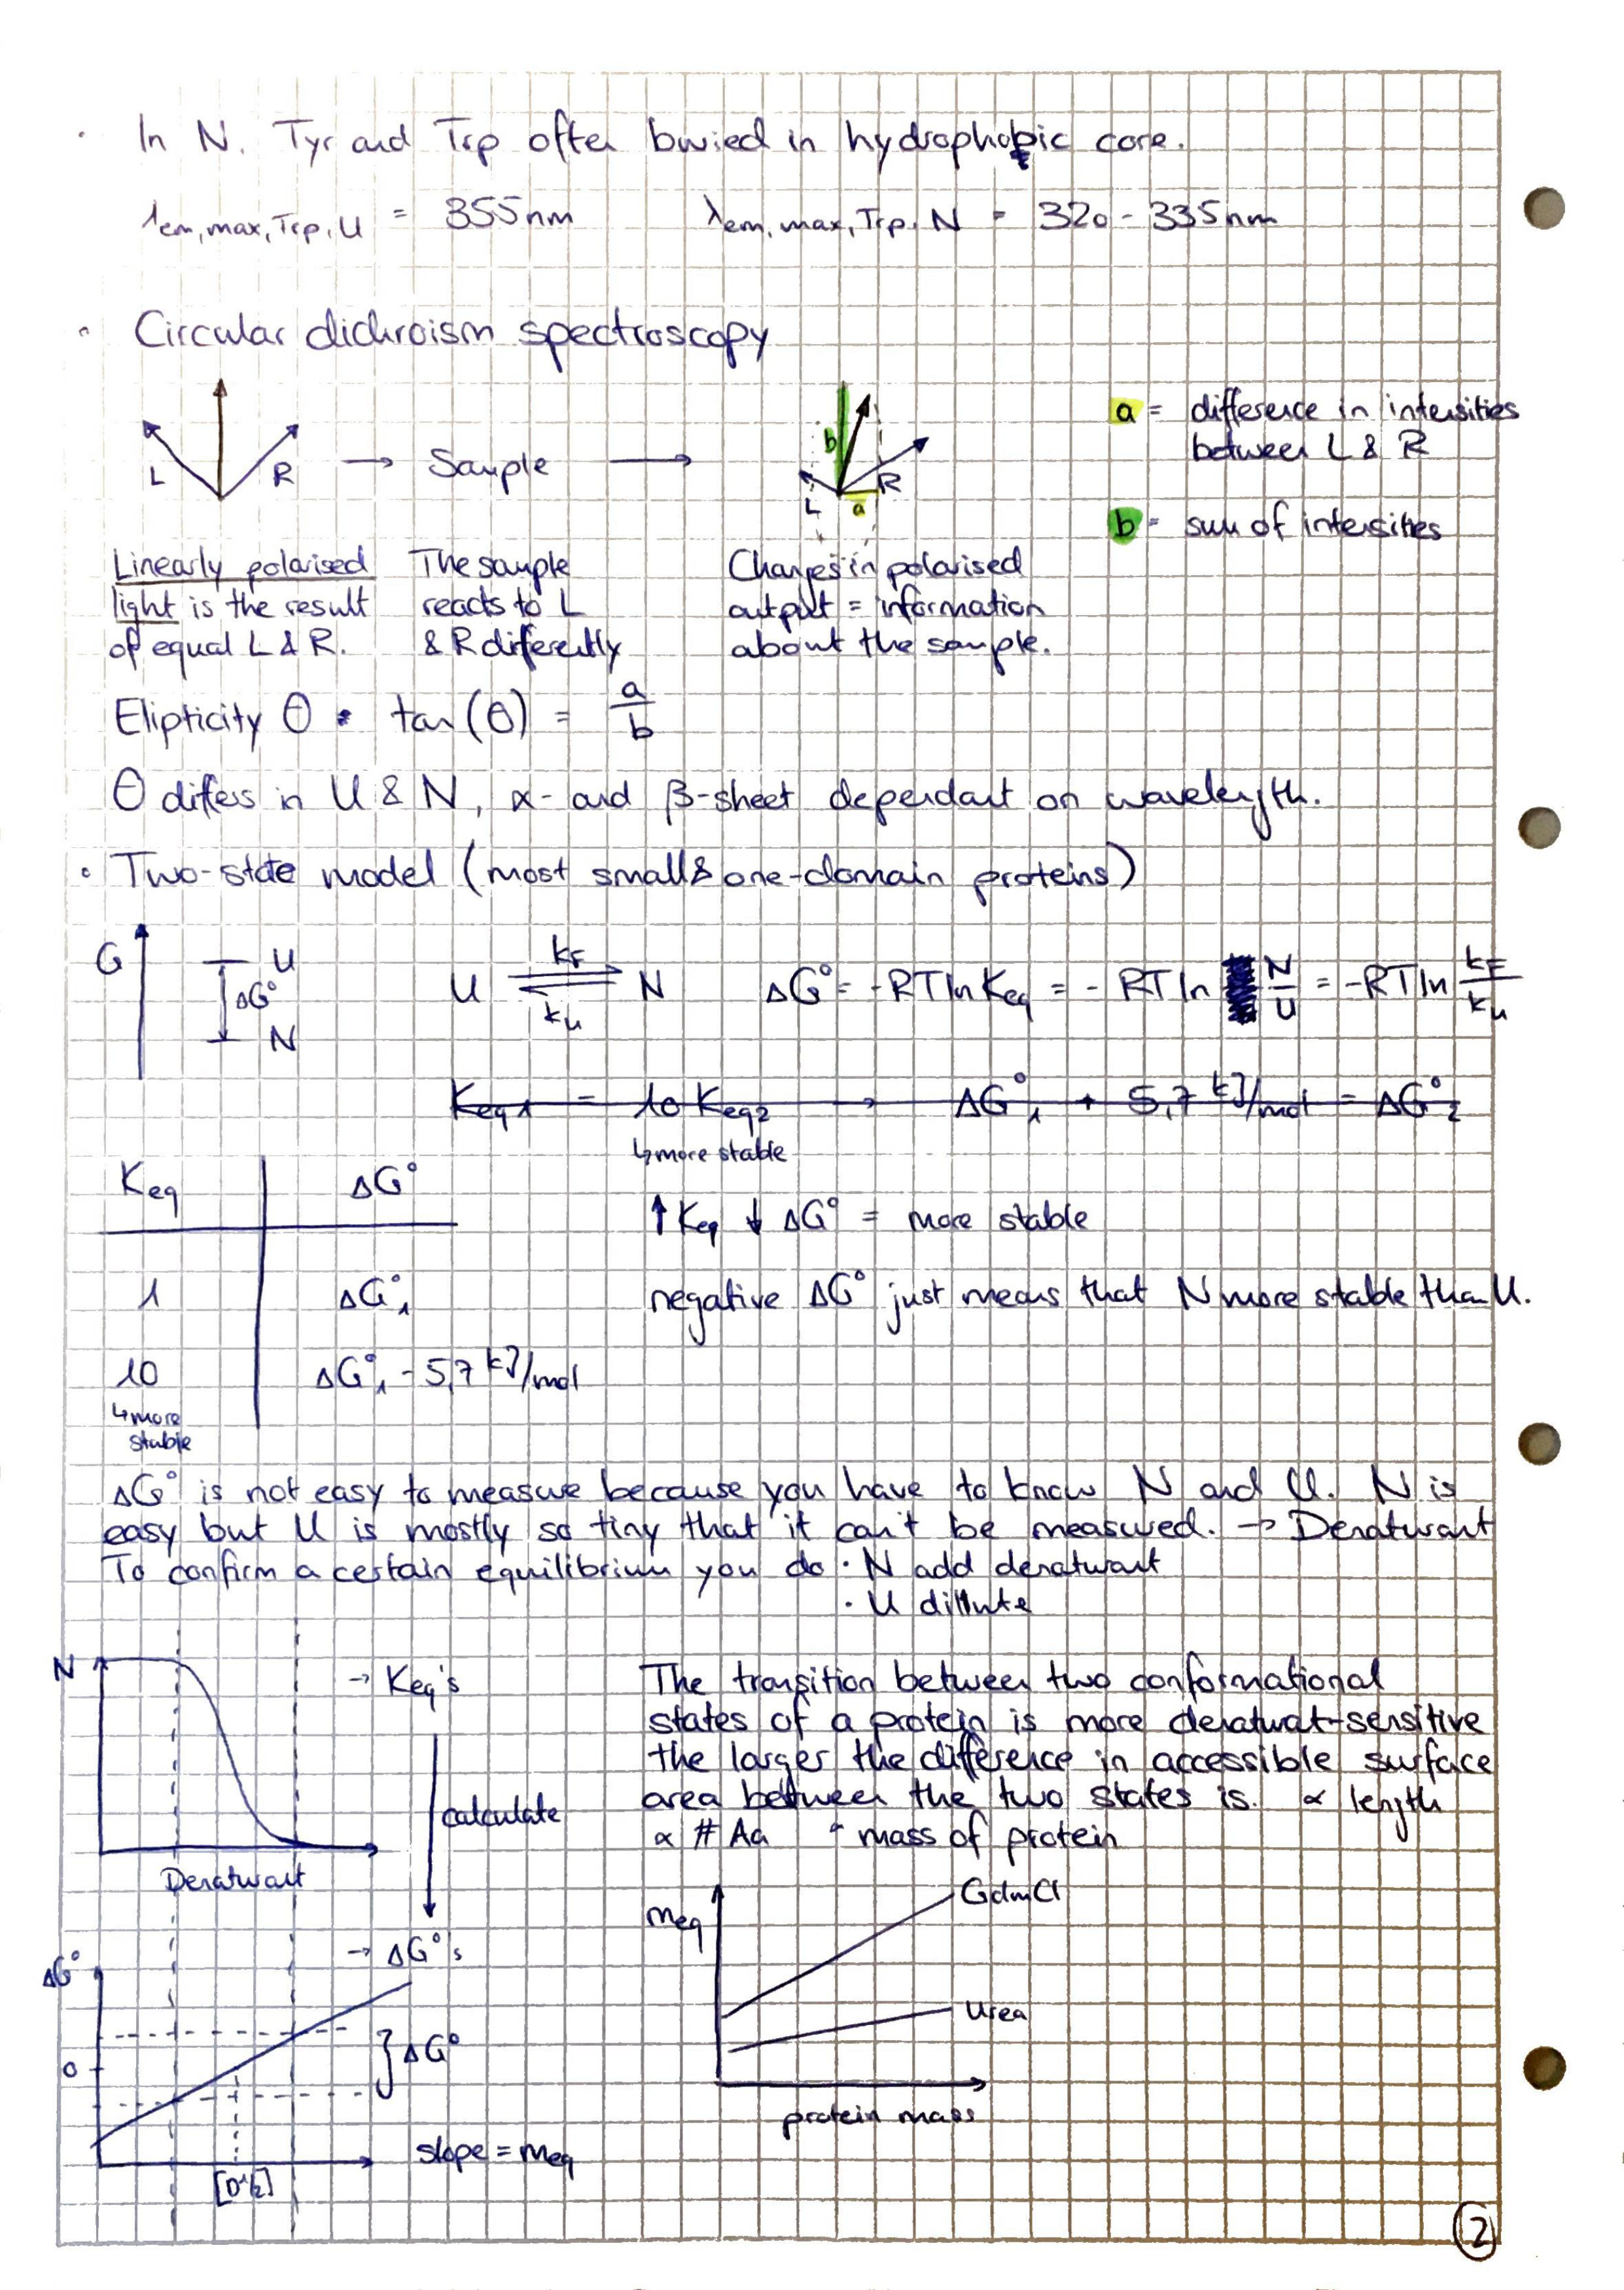 · In N. Tyr and Trp often buried in hydrophobic core.
λem,max,Trp,U = 355nm λem,max,Trp,N = 320-335nm
· Circular dichroism spectroscopy
L R → Sample → b L a R
a = difference in intensities
between L & R
b = sum of intensities
Linearly polarised The sample Changes in polarised
light is the result reacts to L output = information
of equal L & R. & R differently about the sample.
Elipticity θ · tan(θ) = a/b
θ differs in U & N, α- and β-sheet dependant on wavelength.
· Two-state model (most small & one-domain proteins)
G U ΔG° N
U ⇌ N kF ku ΔG° = -RT ln Keq = - RT ln N/U = -RT ln kF/ku
Keq1 = 10 Keq2 → ΔG°1 + 5,7 kJ/mol = ΔG°2
↳ more stable
Keq ΔG°
↑ Keq ↓ ΔG° = more stable
1 ΔG°1 negative ΔG° just means that N more stable than U.
10 ΔG°1 - 5,7 kJ/mol
↳ more
stable
ΔG° is not easy to measure because you have to know N and U. N is
easy but U is mostly so tiny that it can't be measured. → Denaturant
To confirm a certain equilibrium you do · N add denaturant
· U dillute
N → Keq's
calculate
Denaturant
The transition between two conformational
states of a protein is more denaturat-sensitive
the larger the difference in accessible surface
area between the two states is. ∝ length
∝ # Aa ∝ mass of protein
→ ΔG°'s
ΔG°
0
} ΔG°
[D½]
slope = meq
meq
GdmCl
Urea
protein mass
2